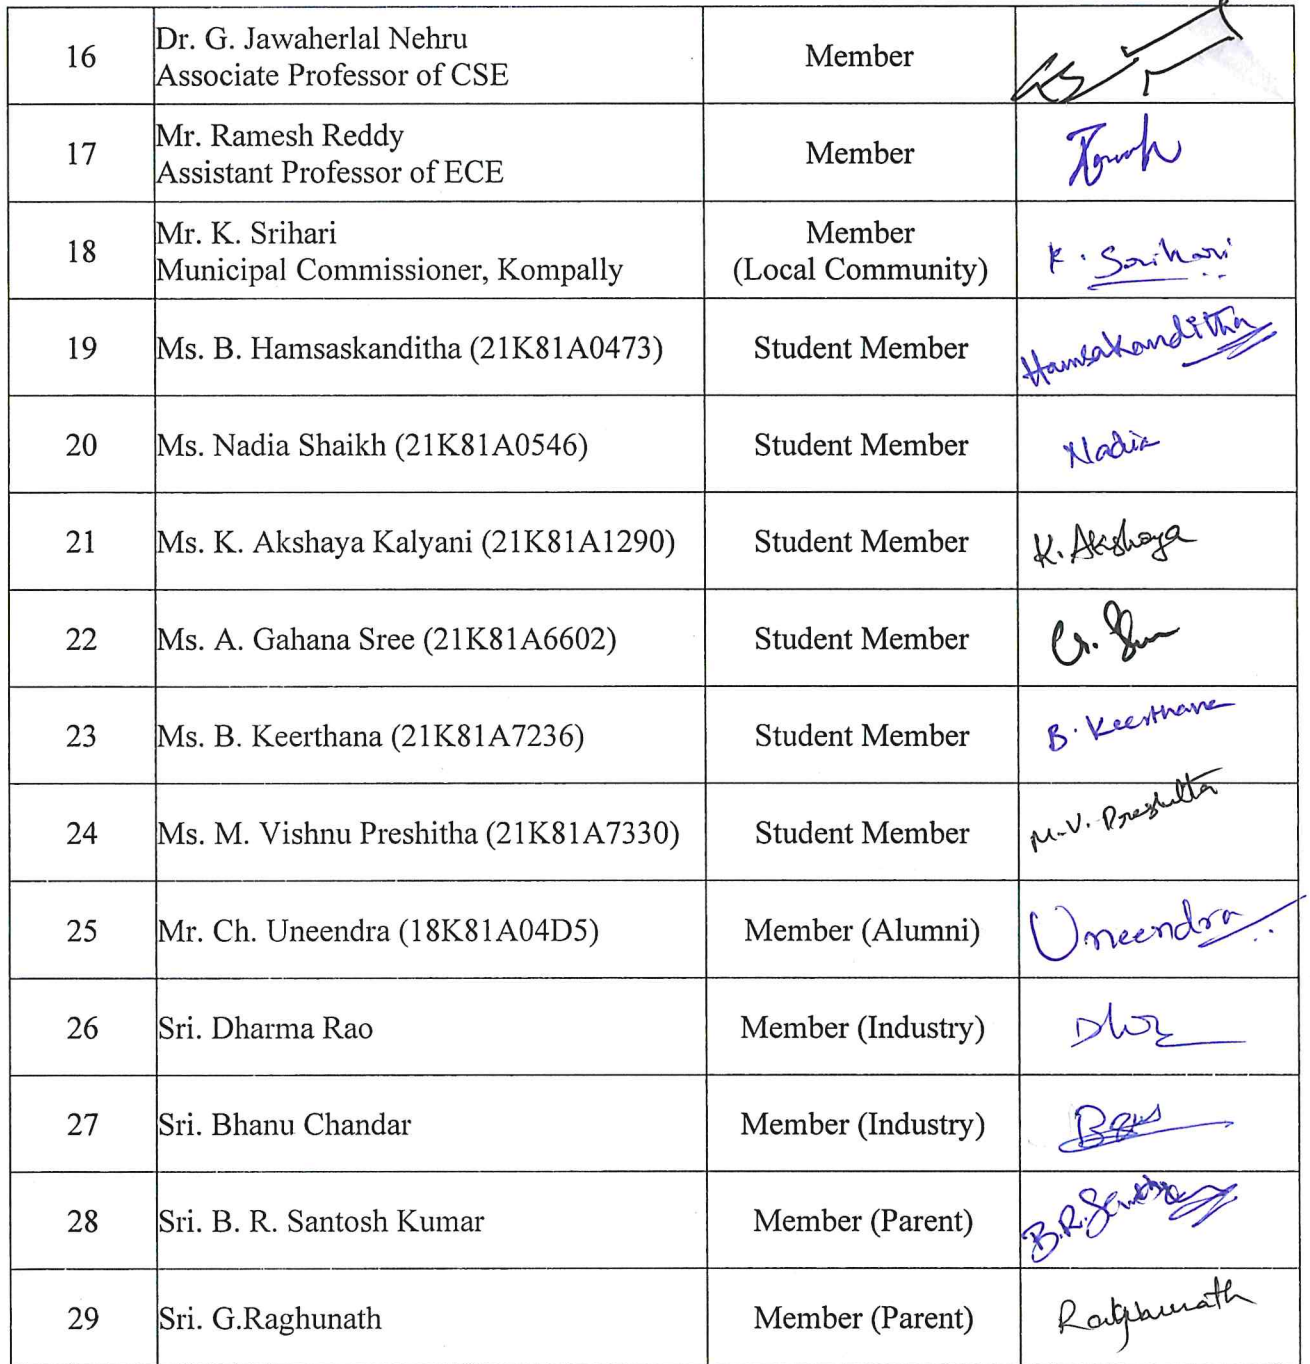 16
Dr. G. Jawaherlal Nehru
Associate Professor of CSE
Member
17
Mr. Ramesh Reddy
Assistant Professor of ECE
Member
18
Mr. K. Srihari
Municipal Commissioner, Kompally
Member
(Local Community)
K. Srihari
19
Ms. B. Hamsaskanditha (21K81A0473)
Student Member
Hamsakanditha
20
Ms. Nadia Shaikh (21K81A0546)
Student Member
Nadia
21
Ms. K. Akshaya Kalyani (21K81A1290)
Student Member
K. Akshaya
22
Ms. A. Gahana Sree (21K81A6602)
Student Member
23
Ms. B. Keerthana (21K81A7236)
Student Member
B. Keerthana
24
Ms. M. Vishnu Preshitha (21K81A7330)
Student Member
M.V. Preshitha
25
Mr. Ch. Uneendra (18K81A04D5)
Member (Alumni)
Uneendra
26
Sri. Dharma Rao
Member (Industry)
27
Sri. Bhanu Chandar
Member (Industry)
28
Sri. B. R. Santosh Kumar
Member (Parent)
B.R.
29
Sri. G.Raghunath
Member (Parent)
Raghunath